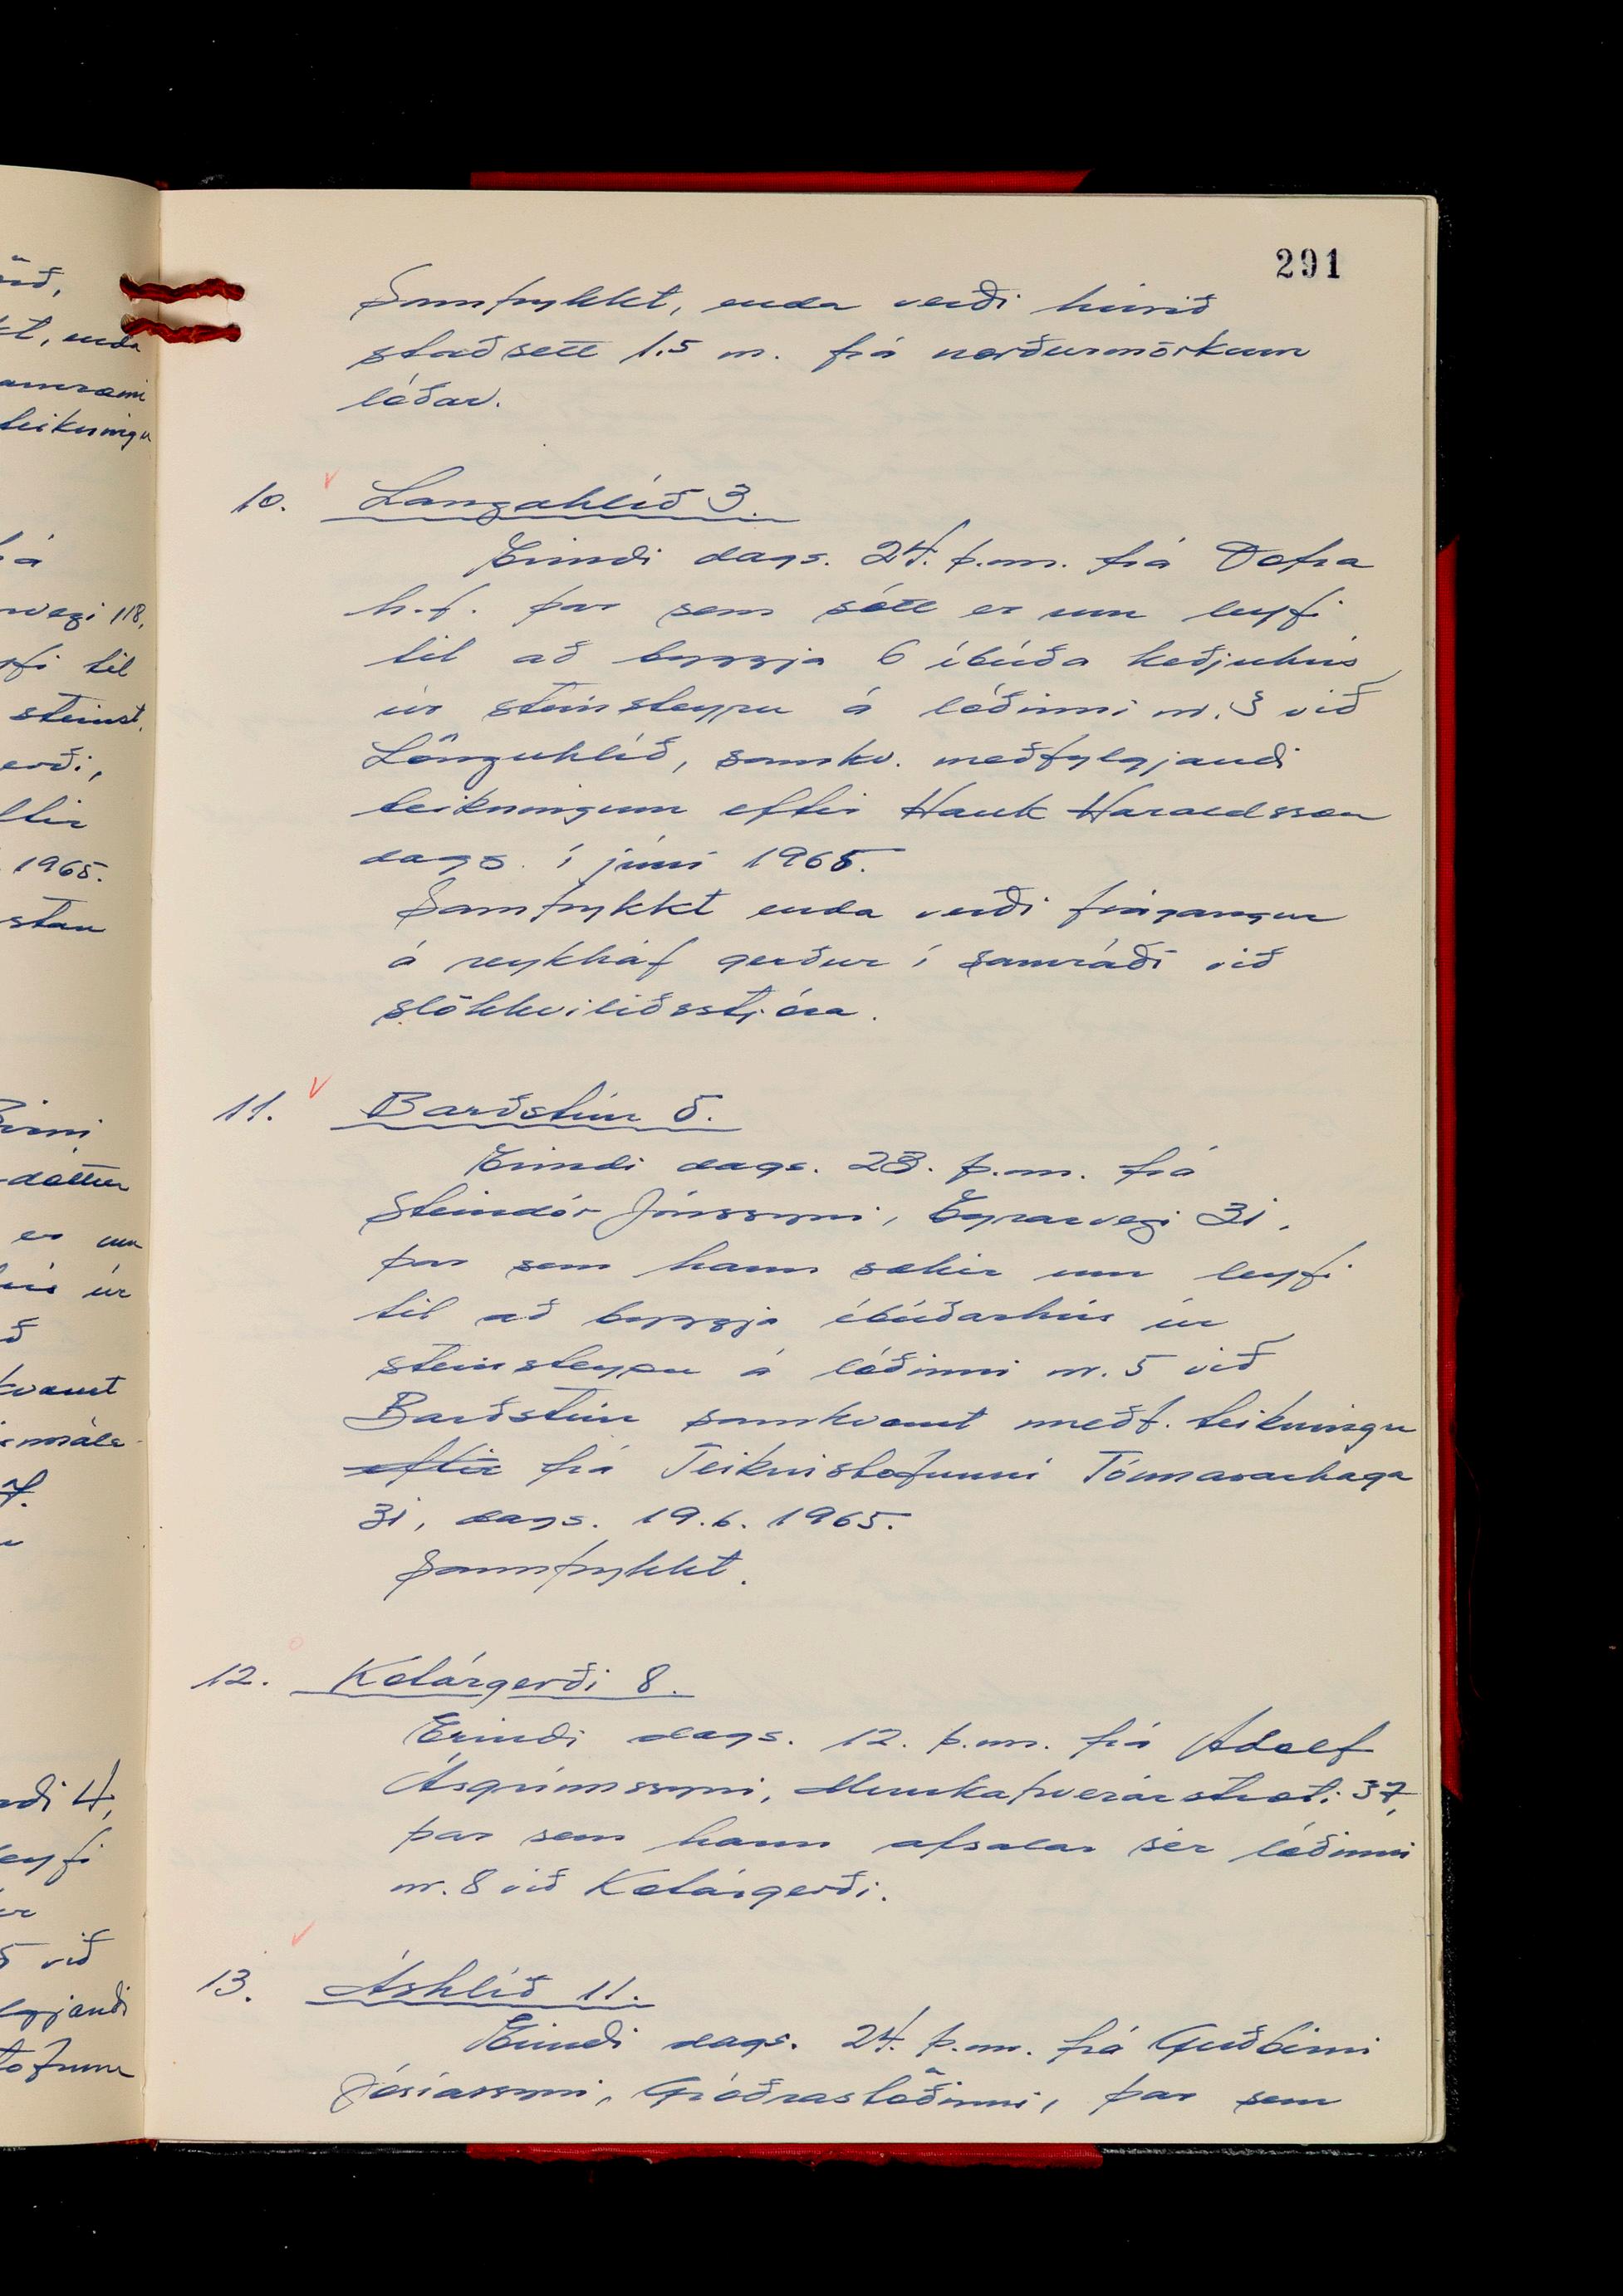 291
Samþykkt, enda verði húsið
staðsett 1.5 m. frá norðurmörkum
lóðar.
10. Langahlíð 3.
Erindi dags. 24. þ.m. frá Dofra
h.f. þar sem sótt er um leyfi
til að byggja 6 íbúða keðjuhús
úr steinsteypu á lóðinni nr. 3 við
Lönguhlíð, samkv. meðfylgjandi
teikningum eftir Hauk Haraldsson
dags. í júní 1965.
Samþykkt enda verði frágangur
á reykháf gerður í samráði við
slökkviliðsstjóra.
11. Barðstún 5.
Erindi dags. 23. þ.m. frá
Steindór Jónssyni, Eyrarvegi 31,
þar sem hann sækir um leyfi
til að byggja íbúðarhús úr
steinsteypu á lóðinni nr. 5 við
Barðstún samkvæmt meðf. teikningu
eftir frá Teiknistofunni Tómasarhaga
31, dags. 19.6. 1965.
Samþykkt.
12. Kotárgerði 8.
Erindi dags. 12. þ.m. frá Adolf
Ásgrímssyni, Munkaþverárstræti 37,
þar sem hann afsalar sér lóðinni
nr. 8 við Kotárgerði.
13. Áshlíð 11.
Erindi dags. 24. þ.m. frá Guðbirni
Jósíassyni, Gróðrastöðinni, þar sem